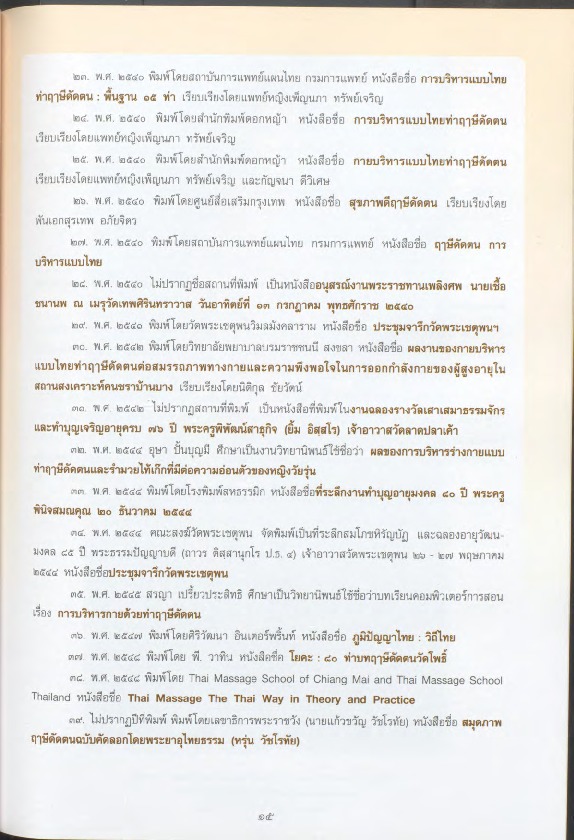 ๒๓. พ.ศ. ๒๕๔๐ พิมพ์โดยสถาบันการแพทย์แผนไทย กรมการแพทย์ หนังสือชื่อ การบริหารแบบไทย
ท่าฤๅษีดัดตน : พื้นฐาน ๑๕ ท่า เรียบเรียงโดยแพทย์หญิงเพ็ญนภา ทรัพย์เจริญ
๒๔. พ.ศ. ๒๕๔๐ พิมพ์โดยสำนักพิมพ์ดอกหญ้า หนังสือชื่อ การบริหารแบบไทยท่าฤๅษีดัดตน
เรียบเรียงโดยแพทย์หญิงเพ็ญนภา ทรัพย์เจริญ
๒๕. พ.ศ. ๒๕๔๐ พิมพ์โดยสำนักพิมพ์ดอกหญ้า หนังสือชื่อ กายบริหารแบบไทยท่าฤๅษีดัดตน
เรียบเรียงโดยแพทย์หญิงเพ็ญนภา ทรัพย์เจริญ และกัญจนา ดีวิเศษ
๒๖. พ.ศ. ๒๕๔๐ พิมพ์โดยศูนย์สื่อเสริมกรุงเทพ หนังสือชื่อ สุขภาพดีฤๅษีดัดตน เรียบเรียงโดย
พันเอกสุรเทพ อภัยจิตว
๒๗. พ.ศ. ๒๕๔๐ พิมพ์โดยสถาบันการแพทย์แผนไทย กรมการแพทย์ หนังสือชื่อ ฤๅษีดัดตน การ
บริหารแบบไทย
๒๘. พ.ศ. ๒๕๔๐ ไม่ปรากฏชื่อสถานที่พิมพ์ เป็นหนังสืออนุสรณ์งานพระราชทานเพลิงศพ นายเชื้อ
ชนานพ ณ เมรุวัดเทพศิรินทราวาส วันอาทิตย์ที่ ๑๓ กรกฎาคม พุทธศักราช ๒๕๔๐
๒๙. พ.ศ. ๒๕๔๐ พิมพ์โดยวัดพระเชตุพนวิมลมังคลาราม หนังสือชื่อ ประชุมจารึกวัดพระเชตุพนฯ
๓๐. พ.ศ. ๒๕๔๒ พิมพ์โดยวิทยาลัยพยาบาลบรมราชชนนี สงขลา หนังสือชื่อ ผลงานของกายบริหาร
แบบไทยท่าฤๅษีดัดตนต่อสมรรถภาพทางกายและความพึงพอใจในการออกกำลังกายของผู้สูงอายุใน
สถานสงเคราะห์คนชราบ้านบาง เรียบเรียงโดยนิติกุล ชัยวัตน์
๓๑. พ.ศ. ๒๕๔๒ ไม่ปรากฏสถานที่พิมพ์ เป็นหนังสือที่พิมพ์ในงานฉลองรางวัลเสาเสมาธรรมจักร
และทำบุญเจริญอายุครบ ๗๖ ปี พระครูพิพัฒน์สาธุกิจ (ยิ้ม อิสฺสโร) เจ้าอาวาสวัดลาดปลาเค้า
๓๒. พ.ศ. ๒๕๔๔ อุษา ปั้นบุญมี ศึกษาเป็นงานวิทยานิพนธ์ใช้ชื่อว่า ผลของการบริหารร่างกายแบบ
ท่าฤๅษีดัดตนและรำมวยไท้เก๊กที่มีต่อความอ่อนตัวของหญิงวัยรุ่น
๓๓. พ.ศ. ๒๕๔๔ พิมพ์โดยโรงพิมพ์สหธรรมิก หนังสือชื่อที่ระลึกงานทำบุญอายุมงคล ๘๐ ปี พระครู
พินิจสมณคุณ ๒๐ ธันวาคม ๒๕๔๔
๓๔. พ.ศ. ๒๕๔๔ คณะสงฆ์วัดพระเชตุพน จัดพิมพ์เป็นที่ระลึกสมโภชหิรัญบัฏ และฉลองอายุวัฒน-
มงคล ๘๕ ปี พระธรรมปัญญาบดี (ถาวร ติสฺสานุกโร ป.ธ. ๔) เจ้าอาวาสวัดพระเชตุพน ๒๖ - ๒๗ พฤษภาคม
๒๕๔๔ หนังสือชื่อประชุมจารึกวัดพระเชตุพน
๓๕. พ.ศ. ๒๕๔๕ สรญา เปรี้ยวประสิทธิ ศึกษาเป็นวิทยานิพนธ์ใช้ชื่อว่าบทเรียนคอมพิวเตอร์การสอน
เรื่อง การบริหารกายด้วยท่าฤๅษีดัดตน
๓๖. พ.ศ. ๒๕๔๗ พิมพ์โดยศิริวัฒนา อินเตอร์พริ้นท์ หนังสือชื่อ ภูมิปัญญาไทย : วิถีไทย
๓๗. พ.ศ. ๒๕๔๘ พิมพ์โดย พี. วาทิน หนังสือชื่อ โยคะ : ๘๐ ท่าบทฤๅษีดัดตนวัดโพธิ์
๓๘. พ.ศ. ๒๕๔๘ พิมพ์โดย Thai Massage School of Chiang Mai and Thai Massage School
Thailand หนังสือชื่อ Thai Massage The Thai Way in Theory and Practice
๓๙. ไม่ปรากฏปีที่พิมพ์ พิมพ์โดยเลขาธิการพระราชวัง (นายแก้วขวัญ วัชโรทัย) หนังสือชื่อ สมุดภาพ
ฤๅษีดัดตนฉบับคัดลอกโดยพระยาอุไทยธรรม (หรุ่น วัชโรทัย)
๑๕